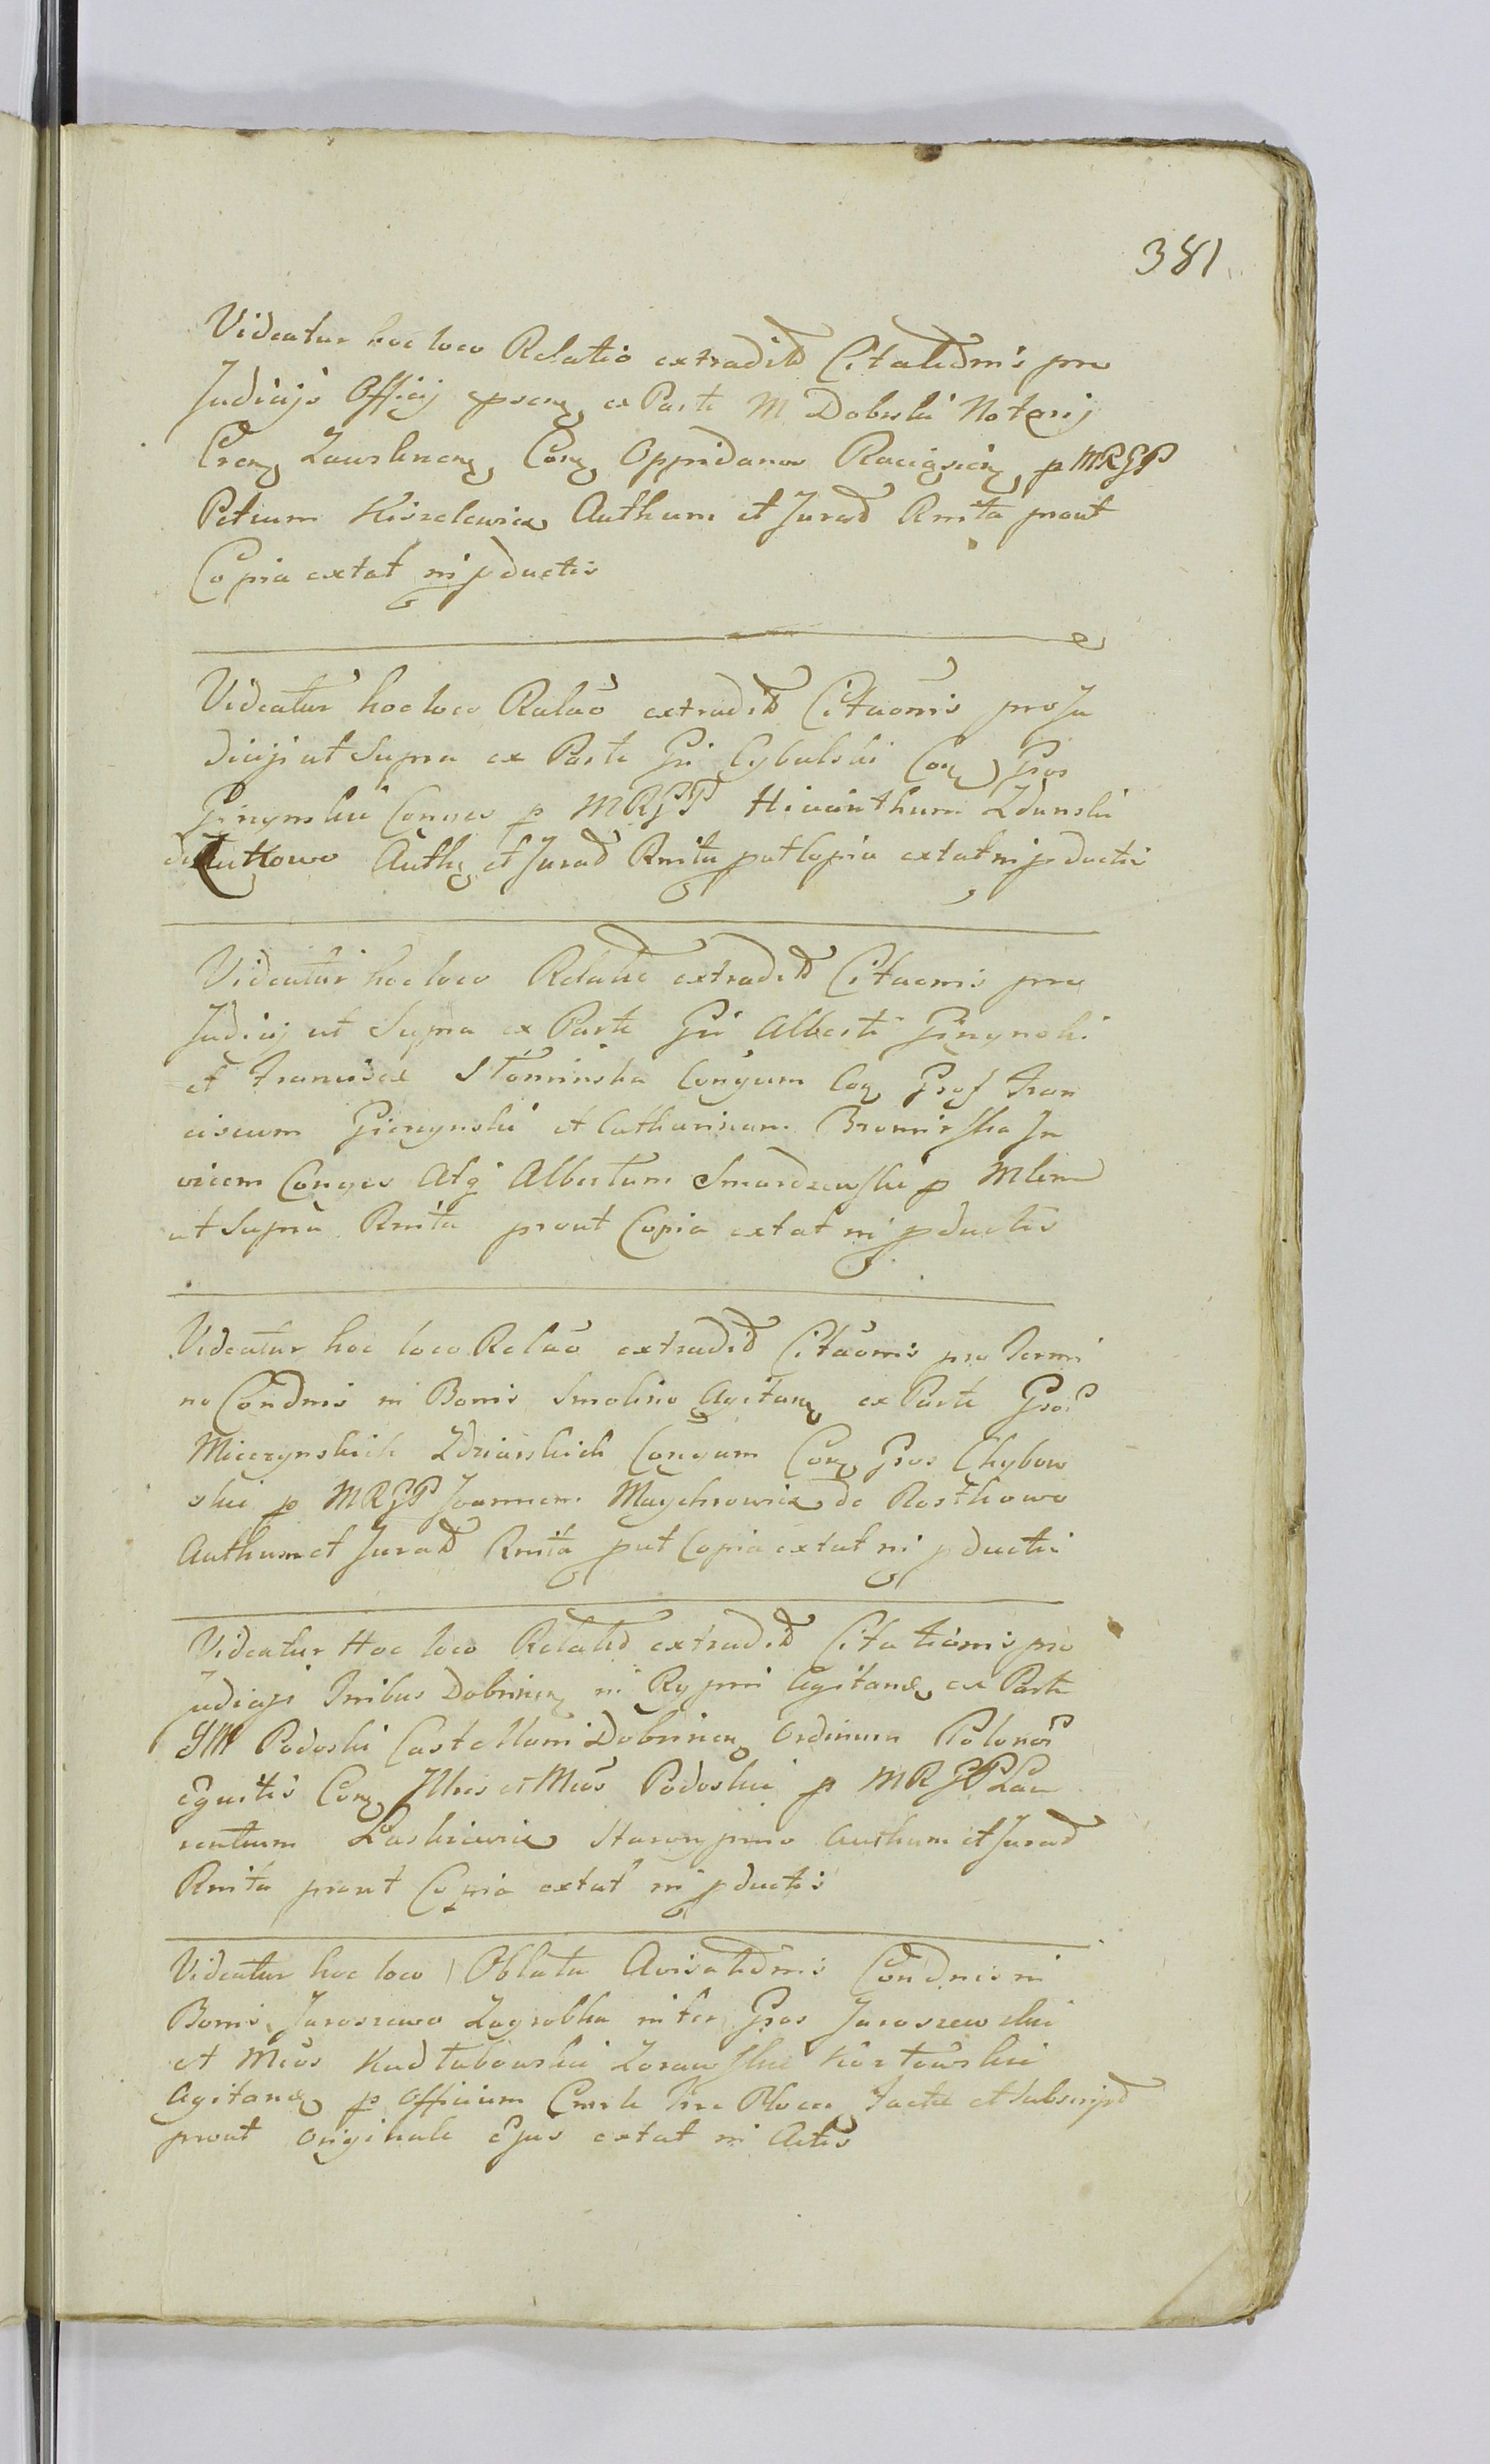 381
Videatur hoc loco Relatio extradit Citationis pro
Judicijs Officij psenz ex Parte M Dobrski Notarij
Crenz Zawskrnenz Conz Oppidanos Raciązienz p MRGP
Petrum Kiszelewicz Authum et Jurad Rnita prout
Copia extat in pductis
Videatur hoc loco Relao extradit Citaonis pro Ju
dicijs ut Supra ex Parte Gri Cybulski Conz Gros
Giżynskie Conges p MRGP Hiacinthum Zdunski
de Authz et Jurad Rnita put Copia extat in pductis
Videatur hoc loco Relatio extradit Citaonis pro
Judicij ut Supra ex Parte Gri Alberti Giżynski
et Francisca Słominska Congum Conz Gros Fran
ciscum Giżynski et Catharinam Bromirska In
vicem Conges Atq Albertum Smardzewski p Mlem
ut Supra Rnita prout Copia extat in pductis
Videatur hoc loco Relao extradit Citaonis pro Termi
no Condnis in Bonis Smolino Agitanz ex Parte Gros
Miczynskich Zdziarskich Congum Conz Gros Chybow
skie p MRGP Joannem Maychrowicz de Rostkowo
Authum et Jurad Rnita put Copia extat in pductis
Videatur Hoc loco Relatio extradit Citationis pro
Judicijs Tribus Dobrinenz in Rypin Agitand ex Parte
JM Podoski Castellani Dobrinenz Ordinum Polonor
Equitis Conz Illres et Mcos Podoskie p MRGP Lau
rentium Laskiewicz Starorypino Authum et Jurad
Rnita prout Copia extat in pductis
Videatur hoc loco Oblata Avisationis Condnis in
Bonis Jaroszewo Zagrobka inter Gros Jaroszewskie
et Mcos Kadłubowskie Zorawskie Kortowskie
Agitand p Officium Tre Plocen Facta et Subscript
prout Originale Ejus extat in Actis